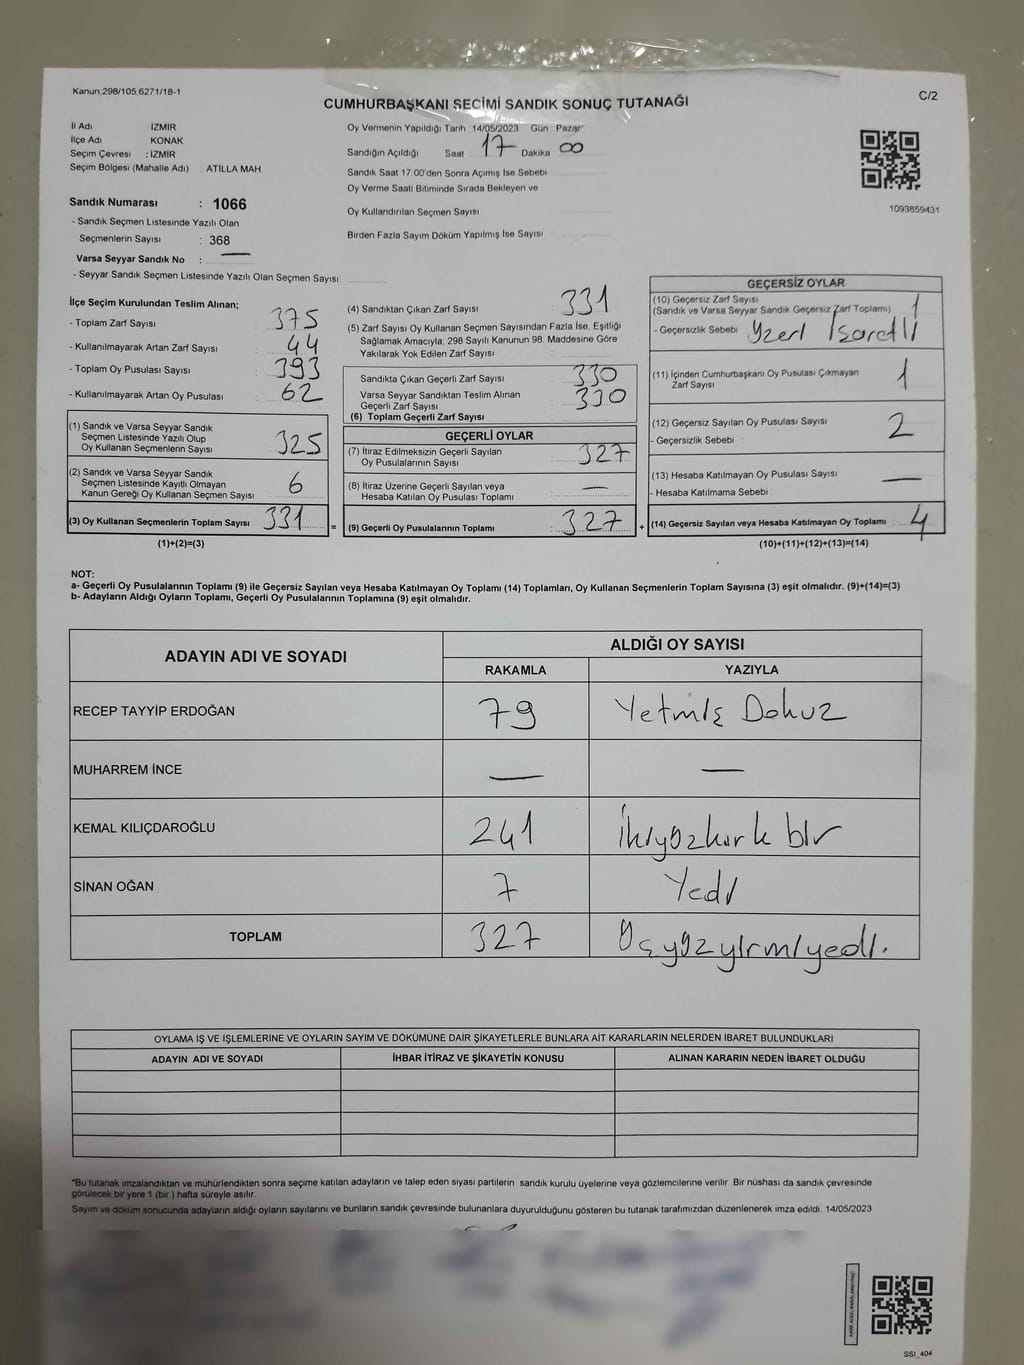 Kanun 298/105 6271/18-1
C/2
CUMHURBAŞKANI SEÇİMİ SANDIK SONUÇ TUTANAĞI
İl Adı İZMİR
İlçe Adı KONAK
Seçim Çevresi : İZMİR
Seçim Bölgesi (Mahalle Adı) ATİLLA MAH
Sandık Numarası : 1066
- Sandık Seçmen Listesinde Yazılı Olan
Seçmenlerin Sayısı : 368
Varsa Seyyar Sandık No : —
- Seyyar Sandık Seçmen Listesinde Yazılı Olan Seçmen Sayısı:
Oy Vermenin Yapıldığı Tarih 14/05/2023 Gün Pazar
Sandığın Açıldığı Saat 17 Dakika 00
Sandık Saat 17 00'den Sonra Açımış İse Sebebi
Oy Verme Saati Bitiminde Sırada Bekleyen ve
Oy Kullandırılan Seçmen Sayısı
Birden Fazla Sayım Döküm Yapılmış İse Sayısı
1093859431
İlçe Seçim Kurulundan Teslim Alınan;
- Toplam Zarf Sayısı : 375
- Kullanılmayarak Artan Zarf Sayısı : 44
- Toplam Oy Pusulası Sayısı : 393
- Kullanılmayarak Artan Oy Pusulası : 62
(1) Sandık ve Varsa Seyyar Sandık
Seçmen Listesinde Yazılı Olup
Oy Kullanan Seçmenlerin Sayısı : 325
(2) Sandık ve Varsa Seyyar Sandık
Seçmen Listesinde Kayıtlı Olmayan
Kanun Gereği Oy Kullanan Seçmen Sayısı : 6
(3) Oy Kullanan Seçmenlerin Toplam Sayısı : 331
(1)+(2)=(3)
(4) Sandıktan Çıkan Zarf Sayısı : 331
(5) Zarf Sayısı Oy Kullanan Seçmen Sayısından Fazla İse, Eşitliği
Sağlamak Amacıyla; 298 Sayılı Kanunun 98. Maddesine Göre
Yakılarak Yok Edilen Zarf Sayısı
Sandıkta Çıkan Geçerli Zarf Sayısı : 330
Varsa Seyyar Sandıktan Teslim Alınan
Geçerli Zarf Sayısı
(6) Toplam Geçerli Zarf Sayısı : 330
GEÇERLİ OYLAR
(7) İtiraz Edilmeksizin Geçerli Sayılan
Oy Pusulalarının Sayısı : 327
(8) İtiraz Üzerine Geçerli Sayılan veya
Hesaba Katılan Oy Pusulası Toplamı : —
= (9) Geçerli Oy Pusulalarının Toplamı : 327 +
GEÇERSİZ OYLAR
(10) Geçersiz Zarf Sayısı
(Sandık ve Varsa Seyyar Sandık Geçersiz Zarf Toplamı) : 1
- Geçersizlik Sebebi : Yzeri İşaretli
(11) İçinden Cumhurbaşkanı Oy Pusulası Çıkmayan
Zarf Sayısı 1
(12) Geçersiz Sayılan Oy Pusulası Sayısı : 2
- Geçersizlik Sebebi :
(13) Hesaba Katılmayan Oy Pusulası Sayısı : —
- Hesaba Katılmama Sebebi :
(14) Geçersiz Sayılan veya Hesaba Katılmayan Oy Toplamı : 4
(10)+(11)+(12)+(13)=(14)
NOT:
a- Geçerli Oy Pusulalarının Toplamı (9) ile Geçersiz Sayılan veya Hesaba Katılmayan Oy Toplamı (14) Toplamları, Oy Kullanan Seçmenlerin Toplam Sayısına (3) eşit olmalıdır. (9)+(14)=(3)
b- Adayların Aldığı Oyların Toplamı, Geçerli Oy Pusulalarının Toplamına (9) eşit olmalıdır.
ADAYIN ADI VE SOYADI
ALDIĞI OY SAYISI
RAKAMLA YAZIYLA
RECEP TAYYİP ERDOĞAN 79 Yetmiş Dokuz
MUHARREM İNCE — —
KEMAL KILIÇDAROĞLU 241 İkiyüzkırk bir
SİNAN OĞAN 7 Yedi
TOPLAM 327 Üçyüzyirmiyedi.
OYLAMA İŞ VE İŞLEMLERİNE VE OYLARIN SAYIM VE DÖKÜMÜNE DAİR ŞİKAYETLERLE BUNLARA AİT KARARLARIN NELERDEN İBARET BULUNDUKLARI
ADAYIN ADI VE SOYADI İHBAR İTİRAZ VE ŞİKAYETİN KONUSU ALINAN KARARIN NEDEN İBARET OLDUĞU
*Bu tutanak imzalandıktan ve mühürlendikten sonra seçime katılan adayların ve talep eden siyasi partilerin sandık kurulu üyelerine veya gözlemcilerine verilir Bir nüshası da sandık çevresinde
görülecek bir yere 1 (bir ) hafta süreyle asılır.
Sayım ve döküm sonucunda adayların aldığı oyların sayılarını ve bunların sandık çevresinde bulunanlara duyurulduğunu gösteren bu tutanak tarafımızdan düzenlenerek imza edildi. 14/05/2023
SSI_404